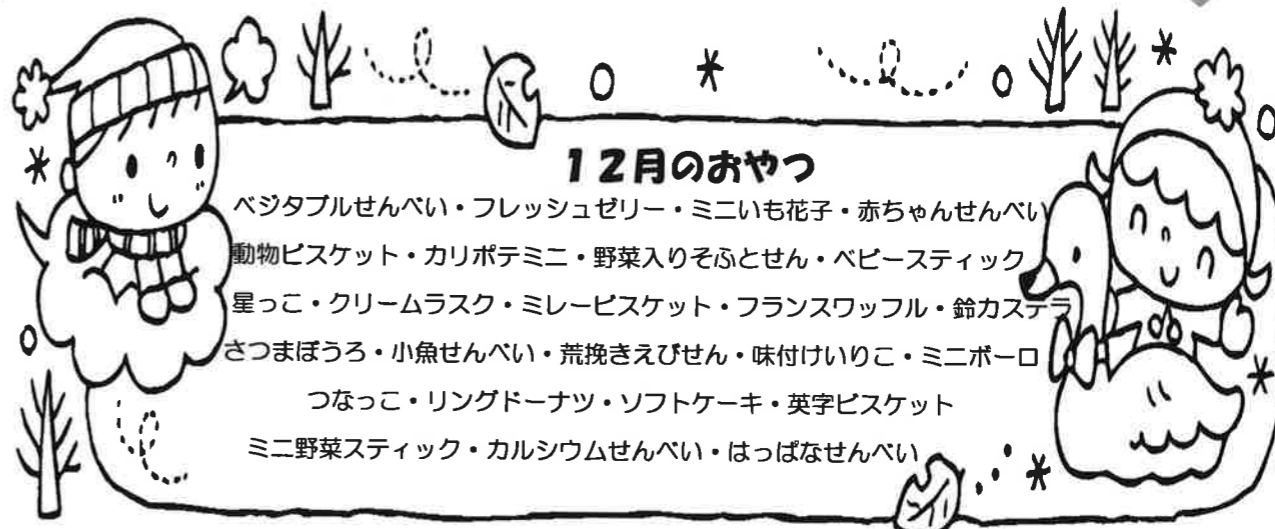 12月のおやつ
ベジタブルせんべい・フレッシュゼリー・ミニいも花子・赤ちゃんせんべい
動物ビスケット・カリポテミニ・野菜入りそふとせん・ベビースティック
星っこ・クリームラスク・ミレービスケット・フランスワッフル・鈴カステラ
さつまぼうろ・小魚せんべい・荒挽きえびせん・味付けいりこ・ミニボーロ
つなっこ・リングドーナツ・ソフトケーキ・英字ビスケット
ミニ野菜スティック・カルシウムせんべい・はっぱなせんべい